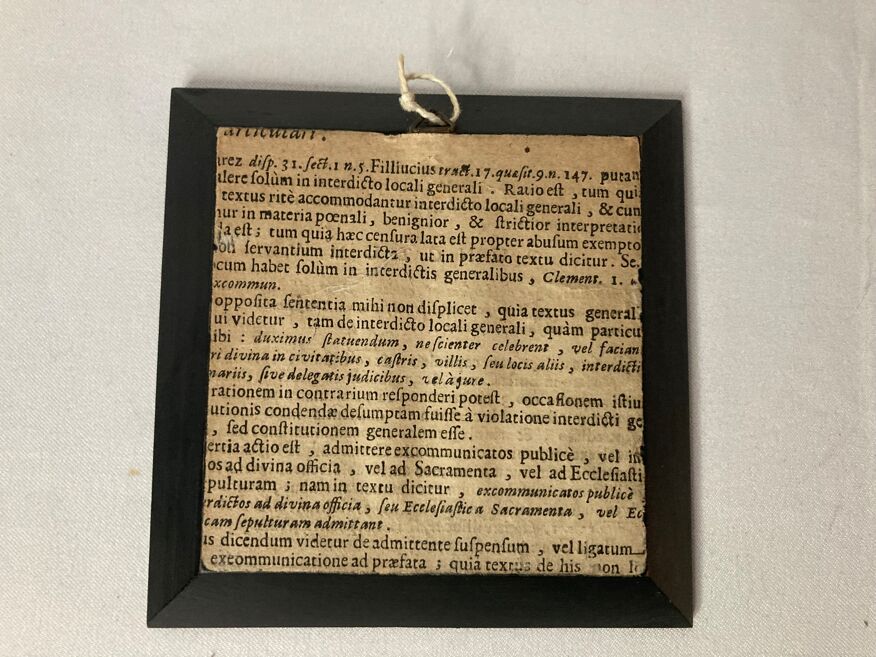 articulari.
arez disp. 31. sect. 1 n. 5. Filliucius tract. 17. quæsit. 9. n. 147. putan
ulere solùm in interdicto locali generali. Ratio est, tum qui
textus ritè accommodantur interdicto locali generali, & cun
ur in materia pœnali, benignior, & strictior interpretati
a est; tum quia hæc censura lata est propter abusum exempto
servantium interdicta, ut in præfato textu dicitur. Se
cum habet solùm in interdictis generalibus, Clement. 1.
xcommun.
opposita sententia mihi non displicet, quia textus general
ui videtur, tam de interdicto locali generali, quàm particu
ibi: duximus statuendum, ne scienter celebrent, vel facian
ri divina in civitatibus, castris, villis, seu locis aliis, interdicti
nariis, sive delegatis judicibus, vel à jure.
rationem in contrarium responderi potest, occasionem istiu
utionis condendæ desumptam fuisse à violatione interdicti ge
, sed constitutionem generalem esse.
ertia actio est, admittere excommunicatos publicè, vel in
os ad divina officia, vel ad Sacramenta, vel ad Ecclesiasti
pulturam; nam in textu dicitur, excommunicatos publicè
rdictos ad divina officia, seu Ecclesiastica Sacramenta, vel Ec
cam sepulturam admittant.
is dicendum videtur de admittente suspensum, vel ligatum
excommunicatione ad præfata; quia textus de his non l